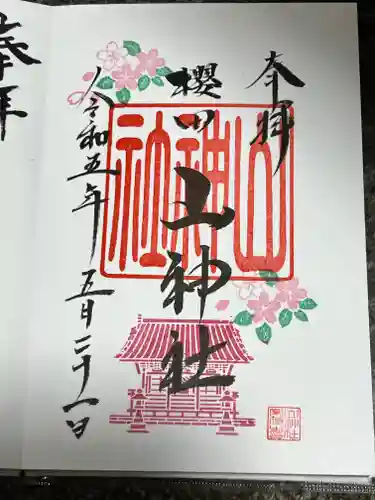 奉拝
櫻田
山神社
山神社
令和五年 五月二十一日
奉拝